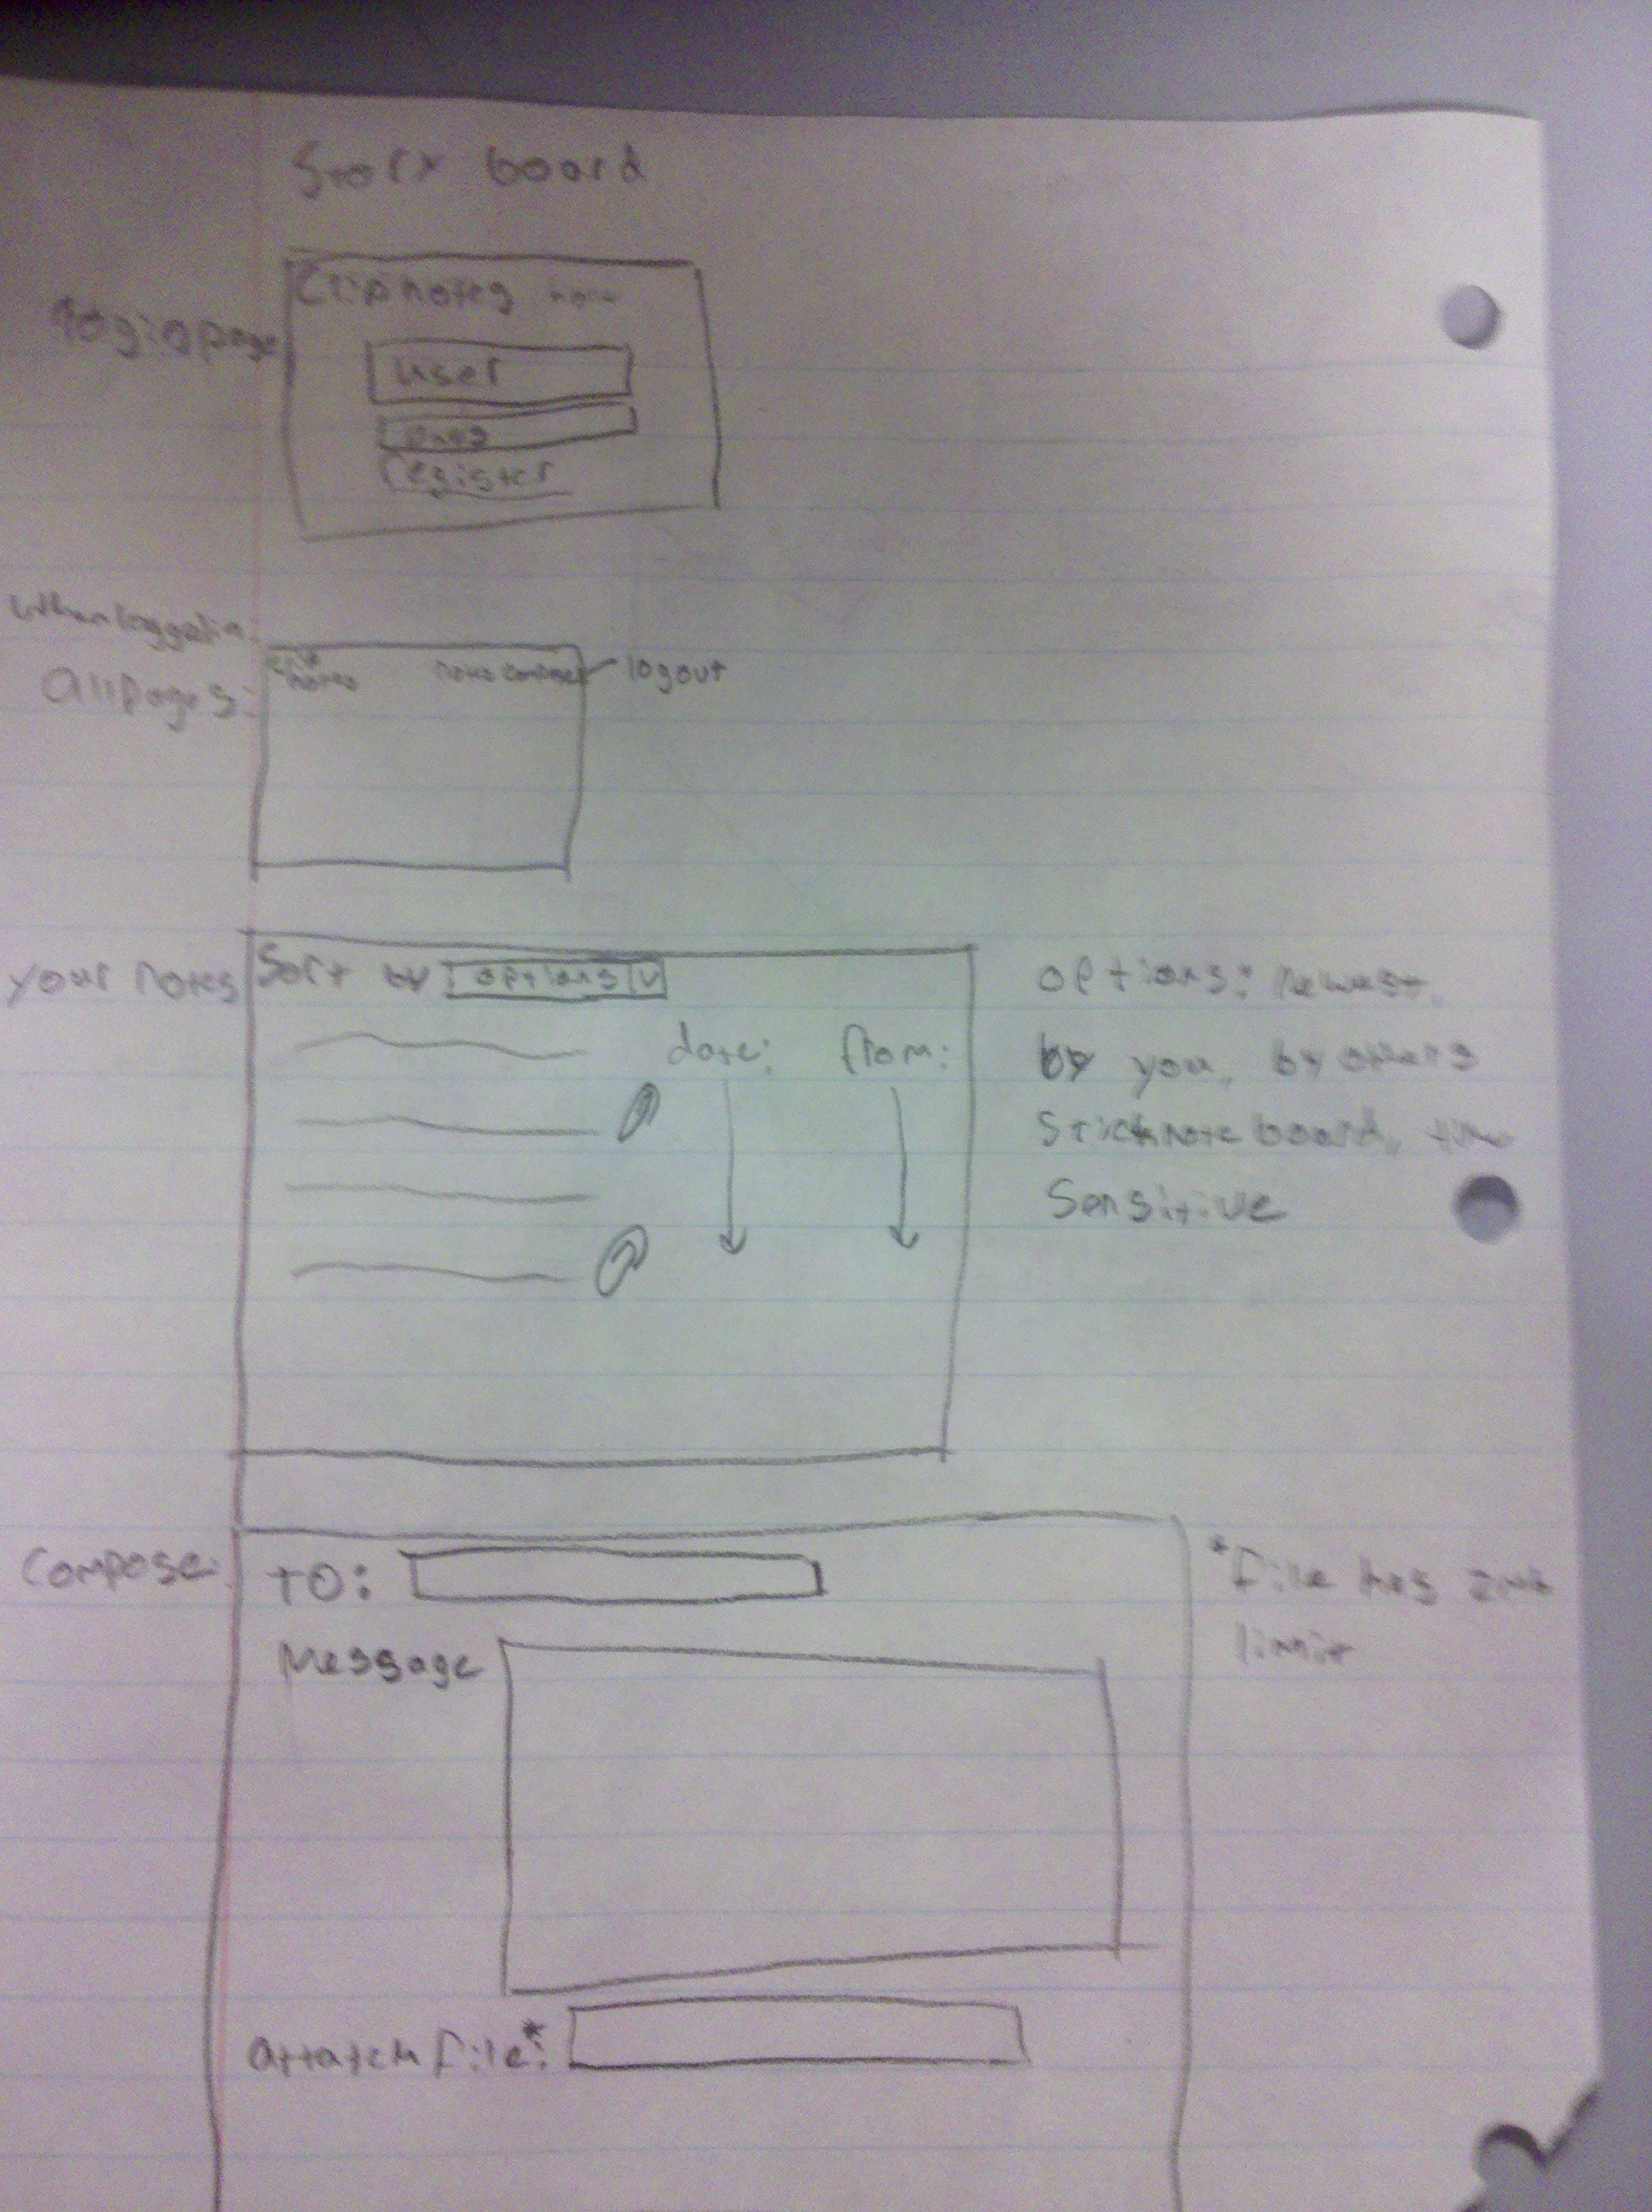 Story board
Login page
Clipnotes
user
pass
register
When logged in
All pages:
Clip
notes
notes compose
logout
your notes
Sort by options v
date: from:
options: newest,
by you, by others
Sticknote board, time
Sensitive
Compose:
TO:
Message
*File has 2mb
limit
attatch file*: